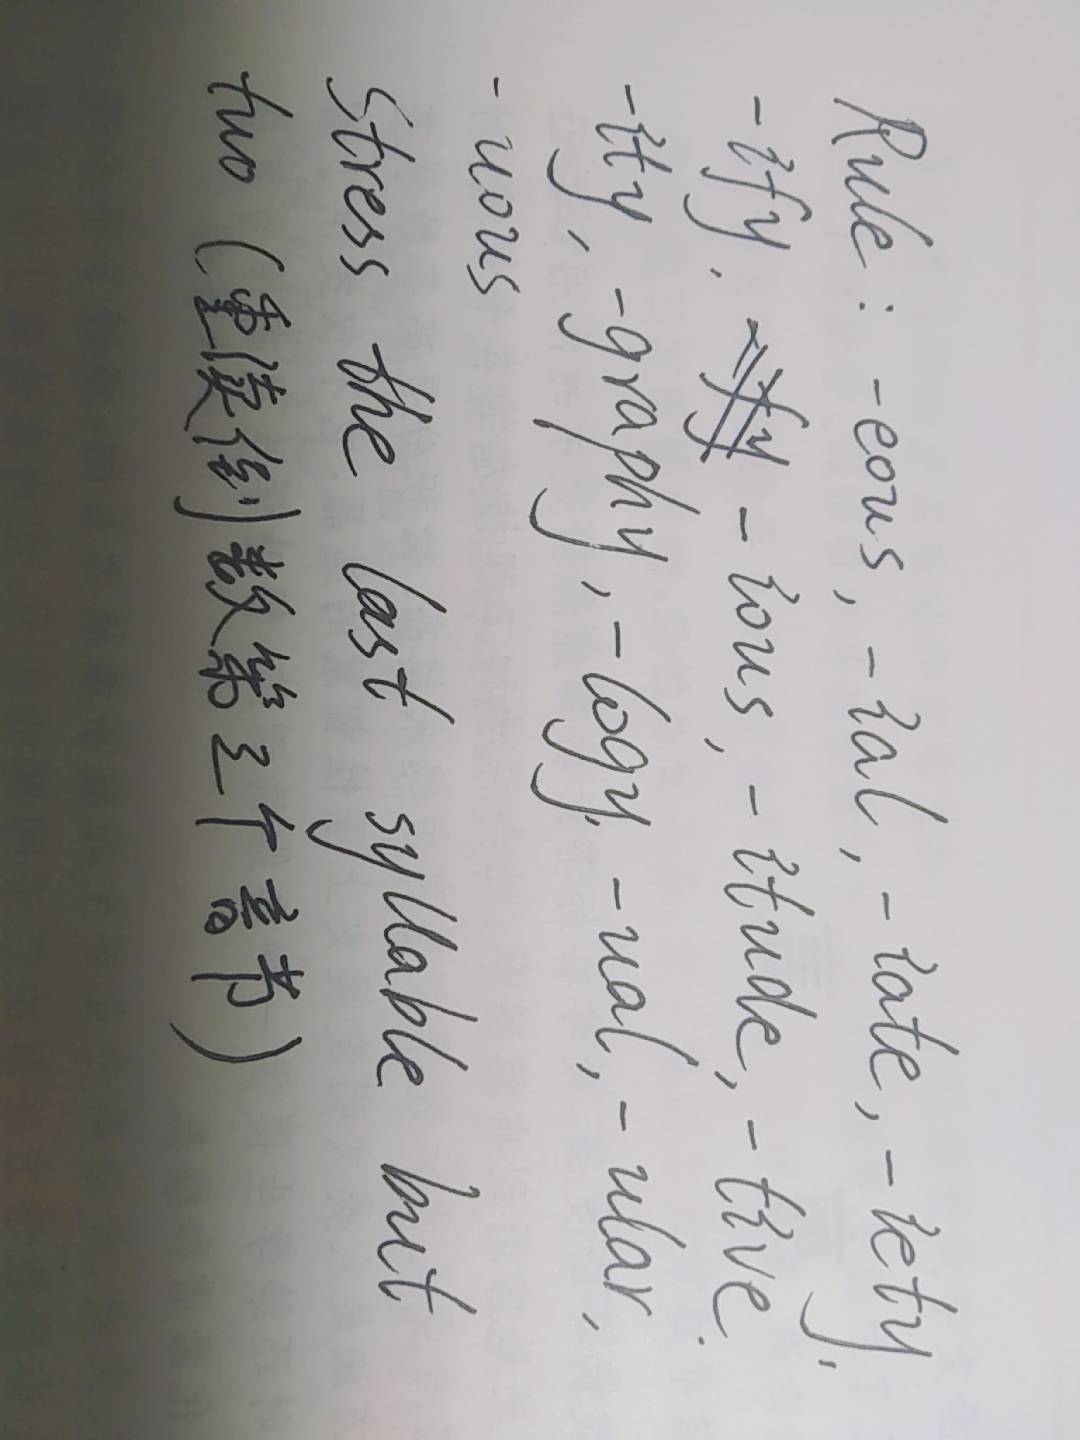 Rule: -eous, -ial, -iate, -iety,
-ify. -ious, -itude, -tive.
-ity, -graphy, -logy, -ual, -ular,
-uous
Stress the last syllable but
two (重读倒数第三个音节)